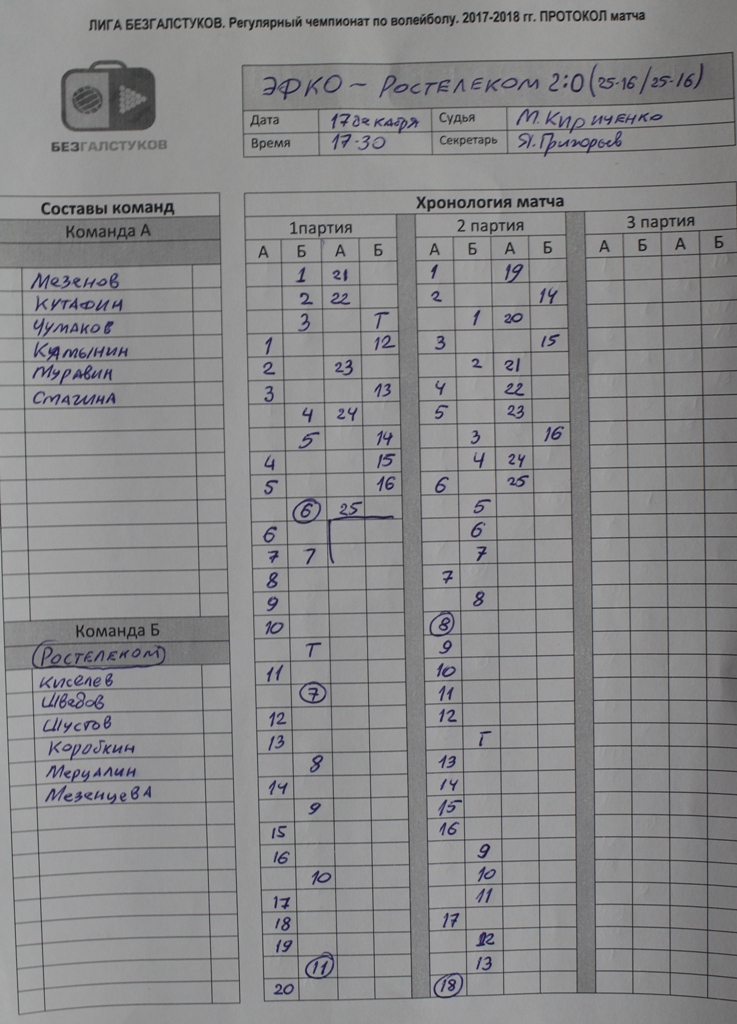 ЛИГА БЕЗГАЛСТУКОВ. Регулярный чемпионат по волейболу. 2017-2018 гг. ПРОТОКОЛ матча
БЕЗГАЛСТУКОВ
ЭФКО – РОСТЕЛЕКОМ 2:0 (25-16/25-16)
Дата 17 декабря Судья М. Кириченко
Время 17-30 Секретарь Я. Григорьев
Составы команд
Команда А
Мезенов
Кутафин
Чумаков
Камынин
Муравин
Смагина
Команда Б
РОСТЕЛЕКОМ
Киселев
Шведов
Шустов
Коробкин
Мерцалин
Мезенцева
Хронология матча
1партия 2 партия 3 партия
А Б А Б А Б А Б А Б А Б
1 21 1 19
2 22 2 14
3 Т 1 20
1 12 3 15
2 23 2 21
3 13 4 22
4 24 5 23
5 14 3 16
4 15 4 24
5 16 6 25
6 25 5
6 6
7 7 7
8 7
9 8
10 8
Т 9
11 10
7 11
12 12
13 Т
8 13
14 14
9 15
15 16
16 9
10 10
17 11
18 17
19 12
11 13
20 18